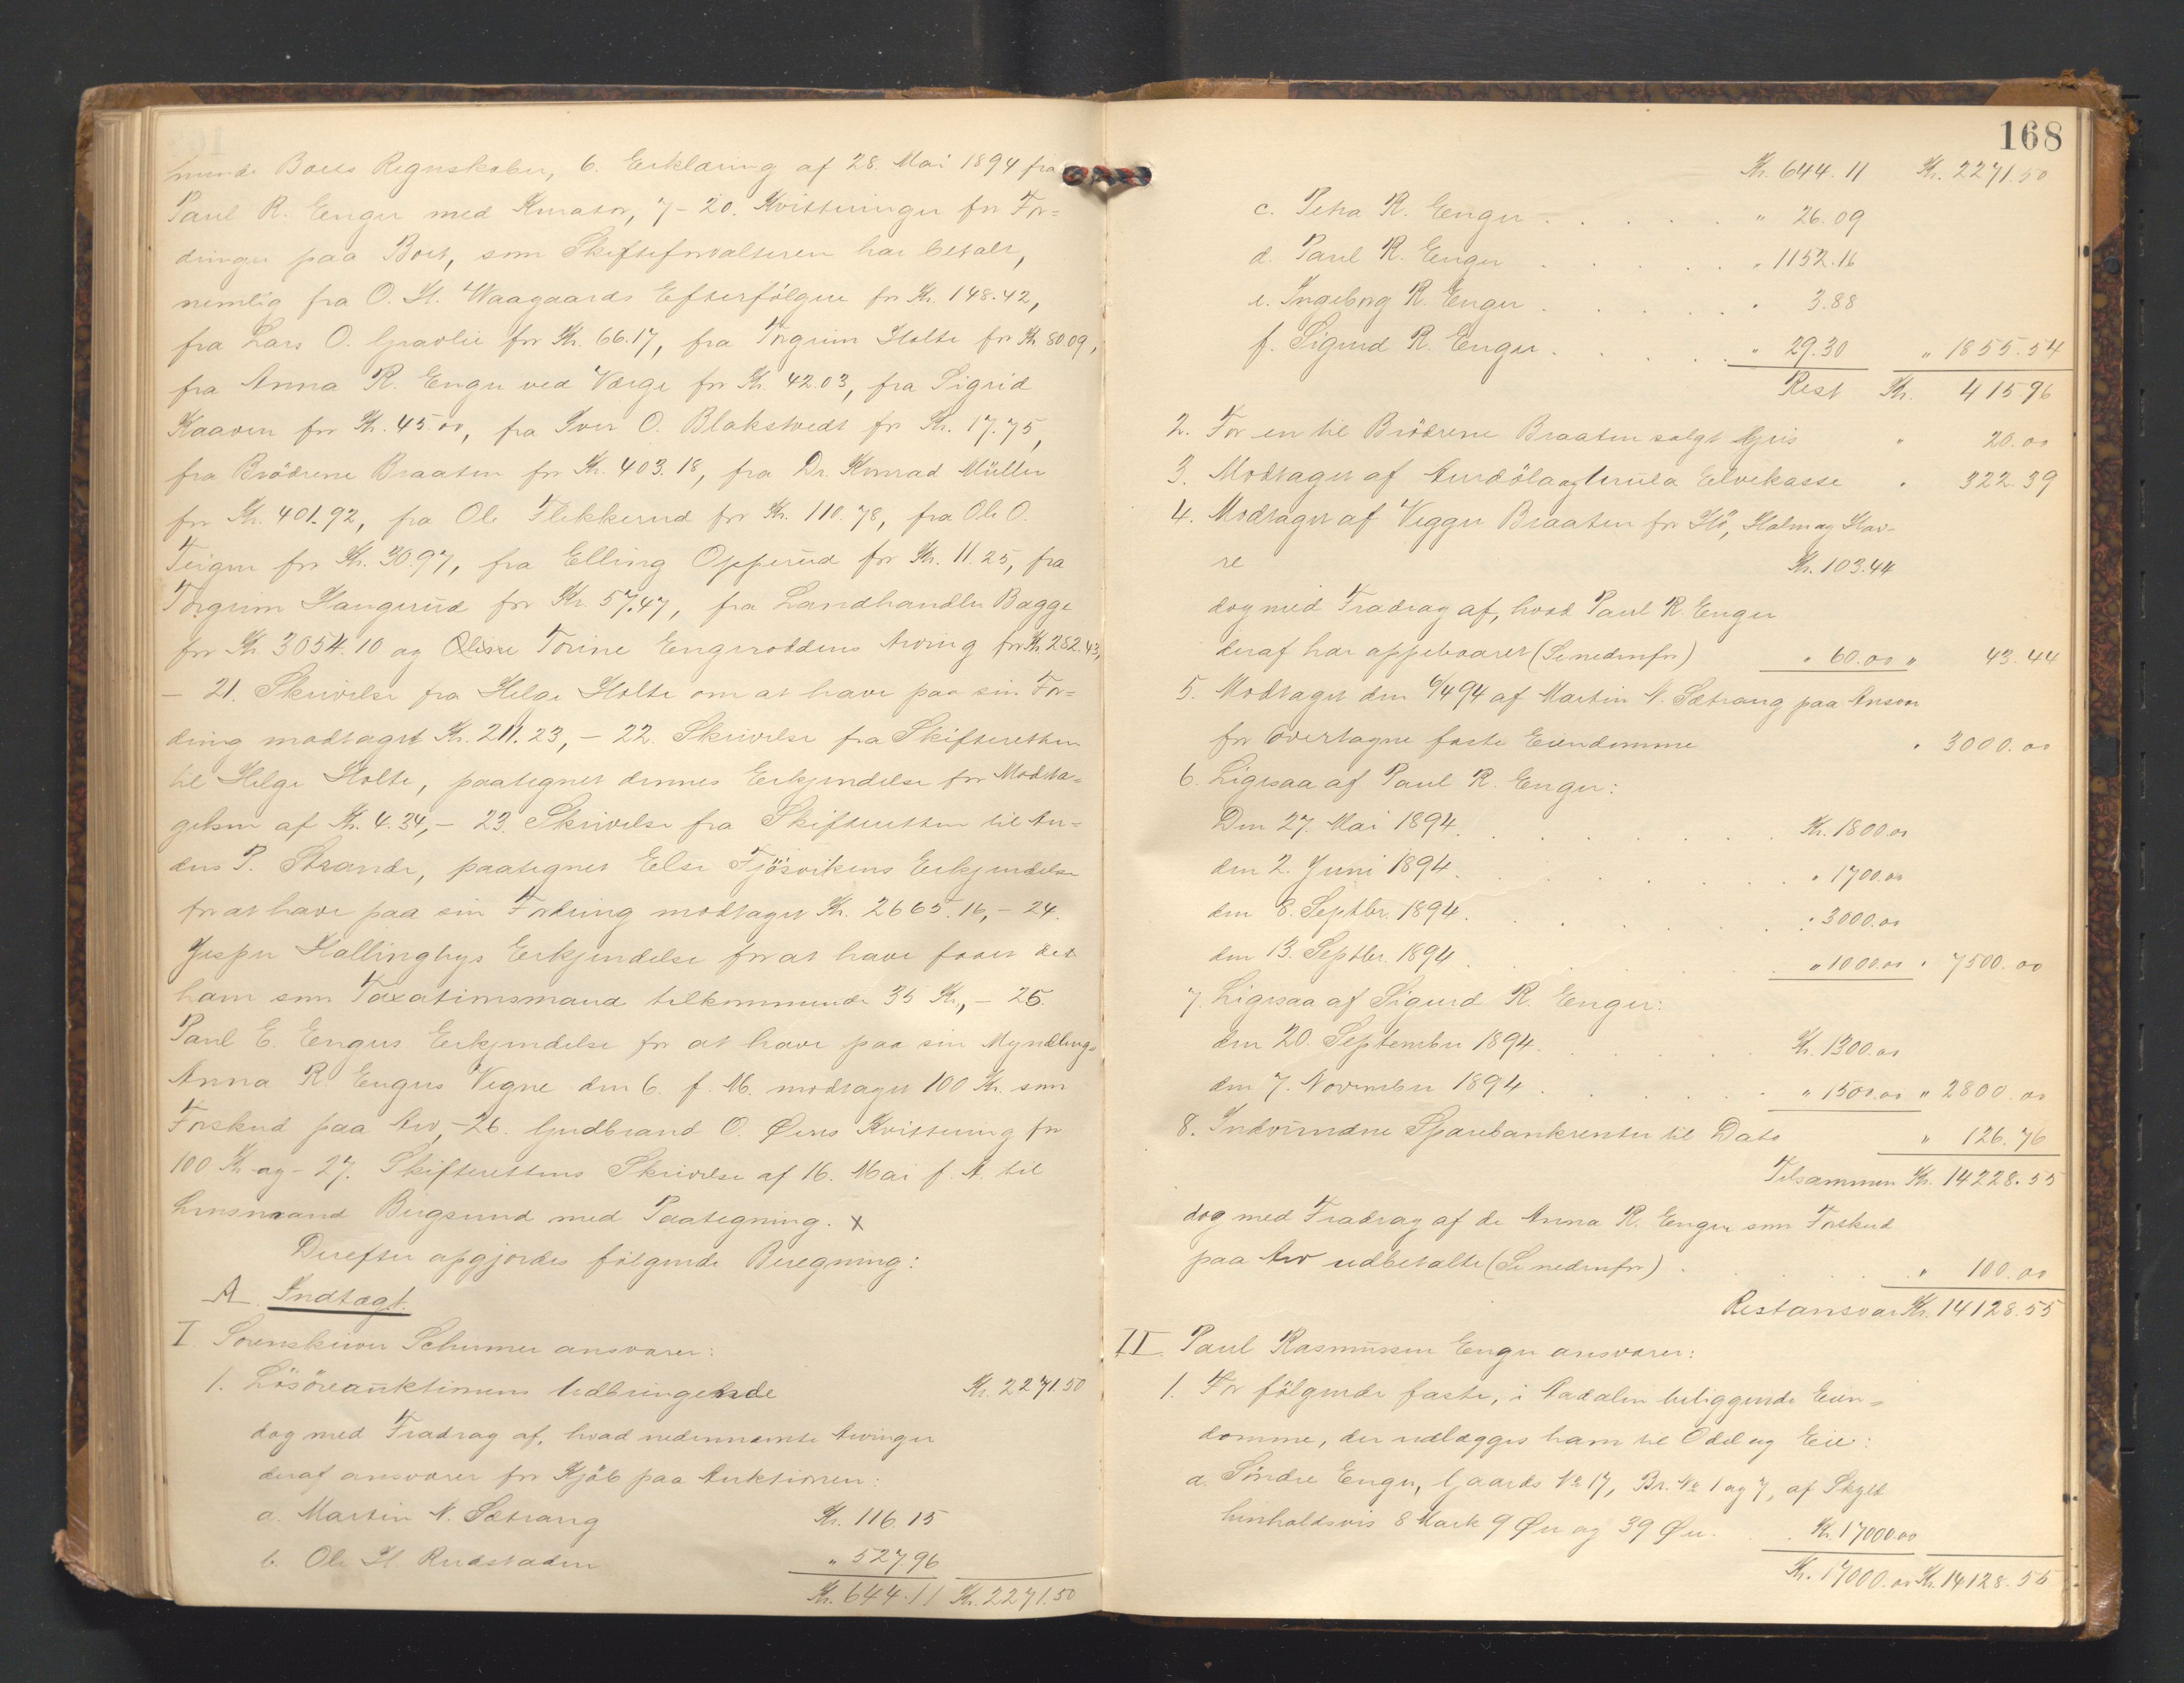 Boets Regnskaber, 6. Erklæring af 28. Mai 1894 fra
Paul R. Enger med Kurator, 7-20. Kvitteringer for For=
dringer paa Boet, som Skifteforvalteren har betalt,
nemlig fra O. H. Waagaards Efterfölgere for Kr. 148.42,
fra Lars O. Gravlie for Kr. 66.17, fra Torgrim Holte for Kr 80.09,
fra Anna R. Enger ved Værge for Kr. 42.03, fra Sigrid
Kaaven for Kr. 45.00, fra Iver O. Blakstvedt for Kr. 17.75,
fra Brödrene Braaten for Kr. 403.18, fra Dr. Konrad Müller
for Kr. 401.92, fra Ole Flikkerud for Kr. 110.78, fra Ole O.
Teigen for Kr. 30.97, fra Elling Opperud for Kr. 11.25, fra
Torgrim Haugerud for Kr. 57.47, fra Landhandler Bagge
for Kr 3054.10 og Torine Engeroddens Arving for Kr 282.43,
- 21. Skrivelse fra Helge Holte om at have paa sin For=
dring modtaget Kr. 211.23, - 22. Skrivelse fra Skifteretten
til Helge Holte, paategnet dennes Erkjendelse for Modta=
gelsen af Kr. 4.34, - 23. Skrivelse fra Skifteretten til An=
ders P. Strande, paategnet Else Fjösvikens Erkjendelse
for at have paa sin Fordring modtaget Kr. 2665.16, - 24.
Jesper Hallingbys Erkjendelse for at have faaet det
ham som Taxationsmand tilkommende 35 Kr., - 25.
Paul E. Engers Erkjendelse for at have paa sin Myndlings
Anna R. Engers Vegne den 6. f. M. modtaget 100 Kr. som
Forskud paa Arv, - 26. Gudbrand O. Øens Kvittering for
100 Kr og - 27. Skifterettens Skrivelse af 16. Mai f. A. til
Lensmand Bergsund med Paategning. x
Derefter opgjordes fölgende Beregning:
A. Indtægt.
I. Sorenskriver Schumer ansvarer:
1. Lösöreauktionens Udbringende Kr. 2271.50
dog med Fradrag af, hvad nedennævnte Arvinger
deraf ansvarer for Kjöb paa Auktionen:
a. Martin N. Sætrang Kr. 116.15
b. Ole H. Rudstaden " 527.96
Kr. 644.11 Kr. 2271.50
168
Kr. 644.11 Kr. 2271.50
c. Petra R. Enger . . . . . " 26.09
d. Paul R. Enger . . . . . " 1152.16
e. Ingeborg R. Enger . . . . . " 3.88
f. Sigurd R. Enger . . . . . " 29.30 " 1855.54
Rest Kr. 415 96
2. For en til Brödrene Braaten solgt Gris " 20.00
3. Modtaget af Aurdöla og Urula Elvekasse " 322.39
4. Modtaget af Vegger Braaten for Hö, Halm og Hav-
re Kr. 103.44
dog med Fradrag af, hvad Paul R. Enger
deraf har oppebaaret (Se nedenfor) " 60.00 " 43.44
5. Modtaget den 6/4 94 af Martin N. Sætrang paa Ansvar
for overtagne faste Eiendomme " 3000.00
6. Ligesaa af Paul R. Enger:
Den 27. Mai 1894 . . . . . Kr. 1800.00
den 2. Juni 1894 . . . . . " 1700.00
den 8. Septbr. 1894 . . . . . " 3000.00
den 13. Septbr. 1894 . . . . . " 1000.00 " 7500.00
7. Ligesaa af Sigurd R. Enger:
den 20. September 1894 . . . . . Kr. 1300.00
den 7. November 1894 . . . . . " 1500.00 " 2800.00
8. Indvundne Sparebankrenter til Dato " 126.76
Tilsammen Kr. 14228.55
dog med Fradrag af de Anna R. Enger som Forskud
paa Arv udbetalte (Se nedenfor) . . . . " 100.00
Restansvar Kr. 14128.55
II. Paul Rasmussen Enger ansvarer:
1. For fölgende faste, i Aadalen beliggende Eien=
domme, der udlægges ham til Odel og Eie:
a. Söndre Enger, Gaards No 17, Br. No 1 og 7, af Skyld
henholdsvis 8 Mark 9 Øre og 39 Øre . . Kr. 17000.00
Kr. 17000.00 Kr. 14128.55